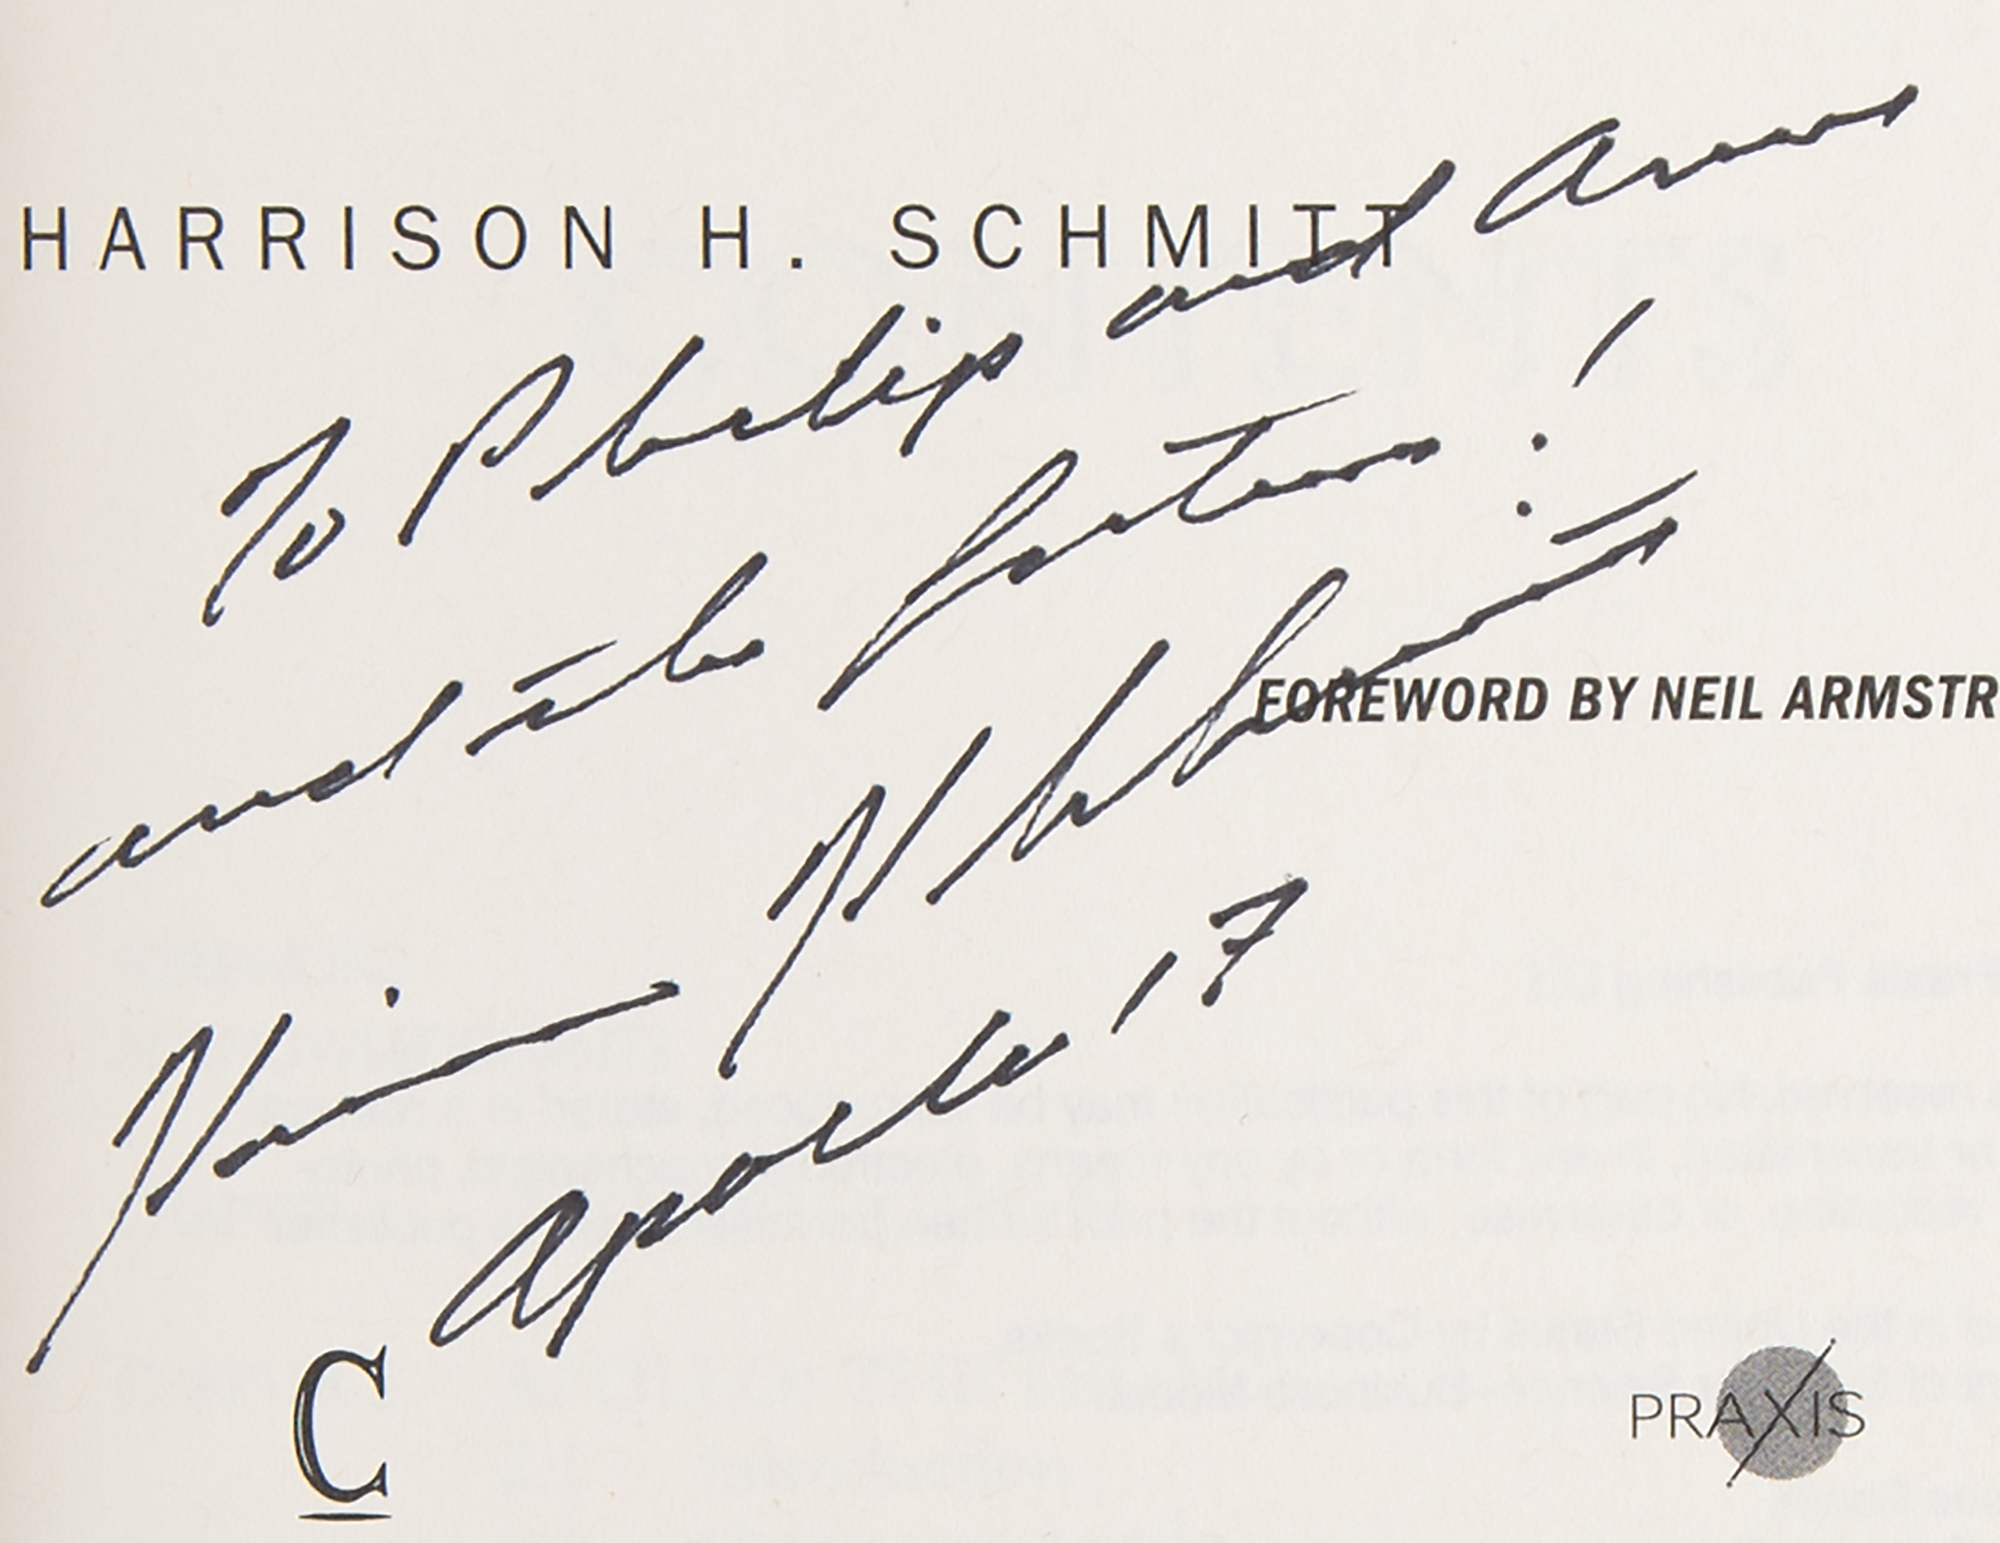 HARRISON H. SCHMITT
To Philip and
and the future!
FOREWORD BY NEIL ARMSTR
Harrison H Schmitt
Apollo 17
C
PRAXIS